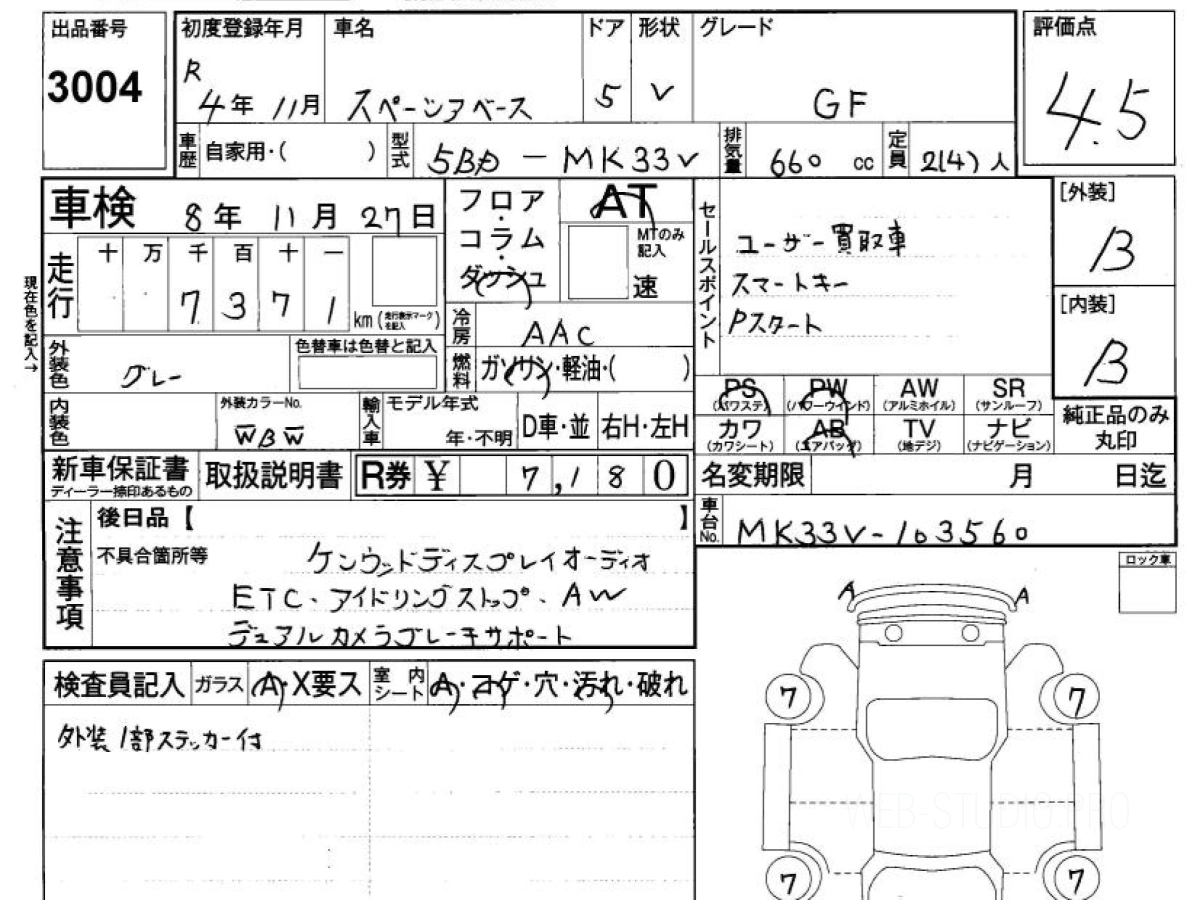 出品番号 初度登録年月 車名 ドア 形状 グレード 評価点
3004 R 4年 11月 スペーシアベース 5 V GF 4.5
車歴 自家用・( ) 型式 5BD-MK33V 排気量 660 cc 定員 2(4)人
車検 8年 11月 27日 フロア・コラム・ダッシュ AT MTのみ記入 速
セールスポイント ユーザー買取車
スマートキー
Pスタート
[外装] B
[内装] B
現在色を記入→
走行 十 万 千 百 十 一
7 3 7 1 km (走行表示マークを記入)
冷房 AAC
外装色 グレー 色替車は色替と記入 燃料 ガソリン・軽油・( )
PS (パワステ) PW (パワーウインド) AW (アルミホイル) SR (サンルーフ)
カワ (カワシート) AB (エアバッグ) TV (地デジ) ナビ (ナビゲーション)
純正品のみ丸印
内装色 外装カラーNo. WBW 輸入車 モデル年式 年・不明 D車・並 右H・左H
新車保証書 ディーラー捺印あるもの 取扱説明書 R券 ¥ 7,180
名変期限 月 日迄
車台No. MK33V-103560
注意事項 後日品【 】
不具合箇所等 ケンウッドディスプレイオーディオ
ETC・アイドリングストップ・AW
デュアルカメラブレーキサポート
ロック車
A A
検査員記入 ガラス A・X要ス 室内シート A・コゲ・穴・汚れ・破れ
外装1部ステッカー付
7 7
WEB-STUDIO.PRO
7 7